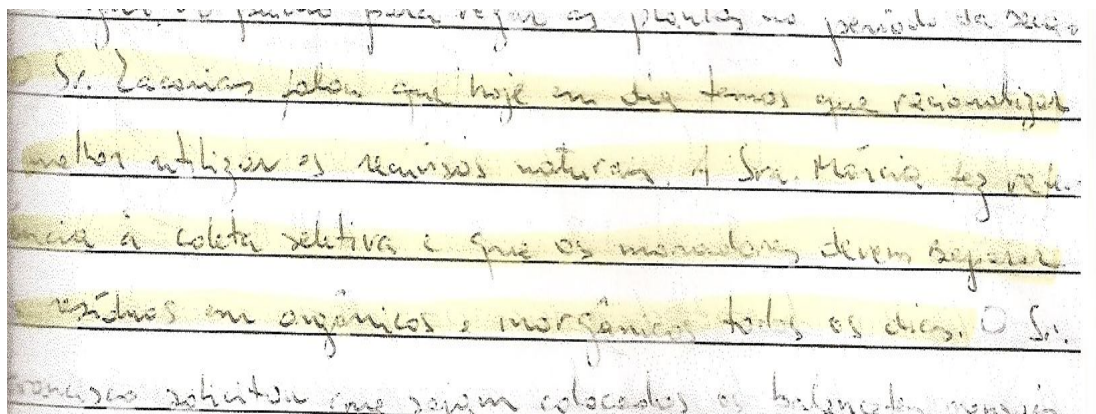 para regar as plantas no período da seca.
O Sr. Zacarias falou que hoje em dia temos que racionalizar
melhor utilizar os recursos naturais. A Sra. Márcia fez refe-
rência à coleta seletiva e que os moradores devem separar
resíduos em orgânicos e inorgânicos todos os dias. O Sr.
Francisco solicitou que sejam colocados os balancetes